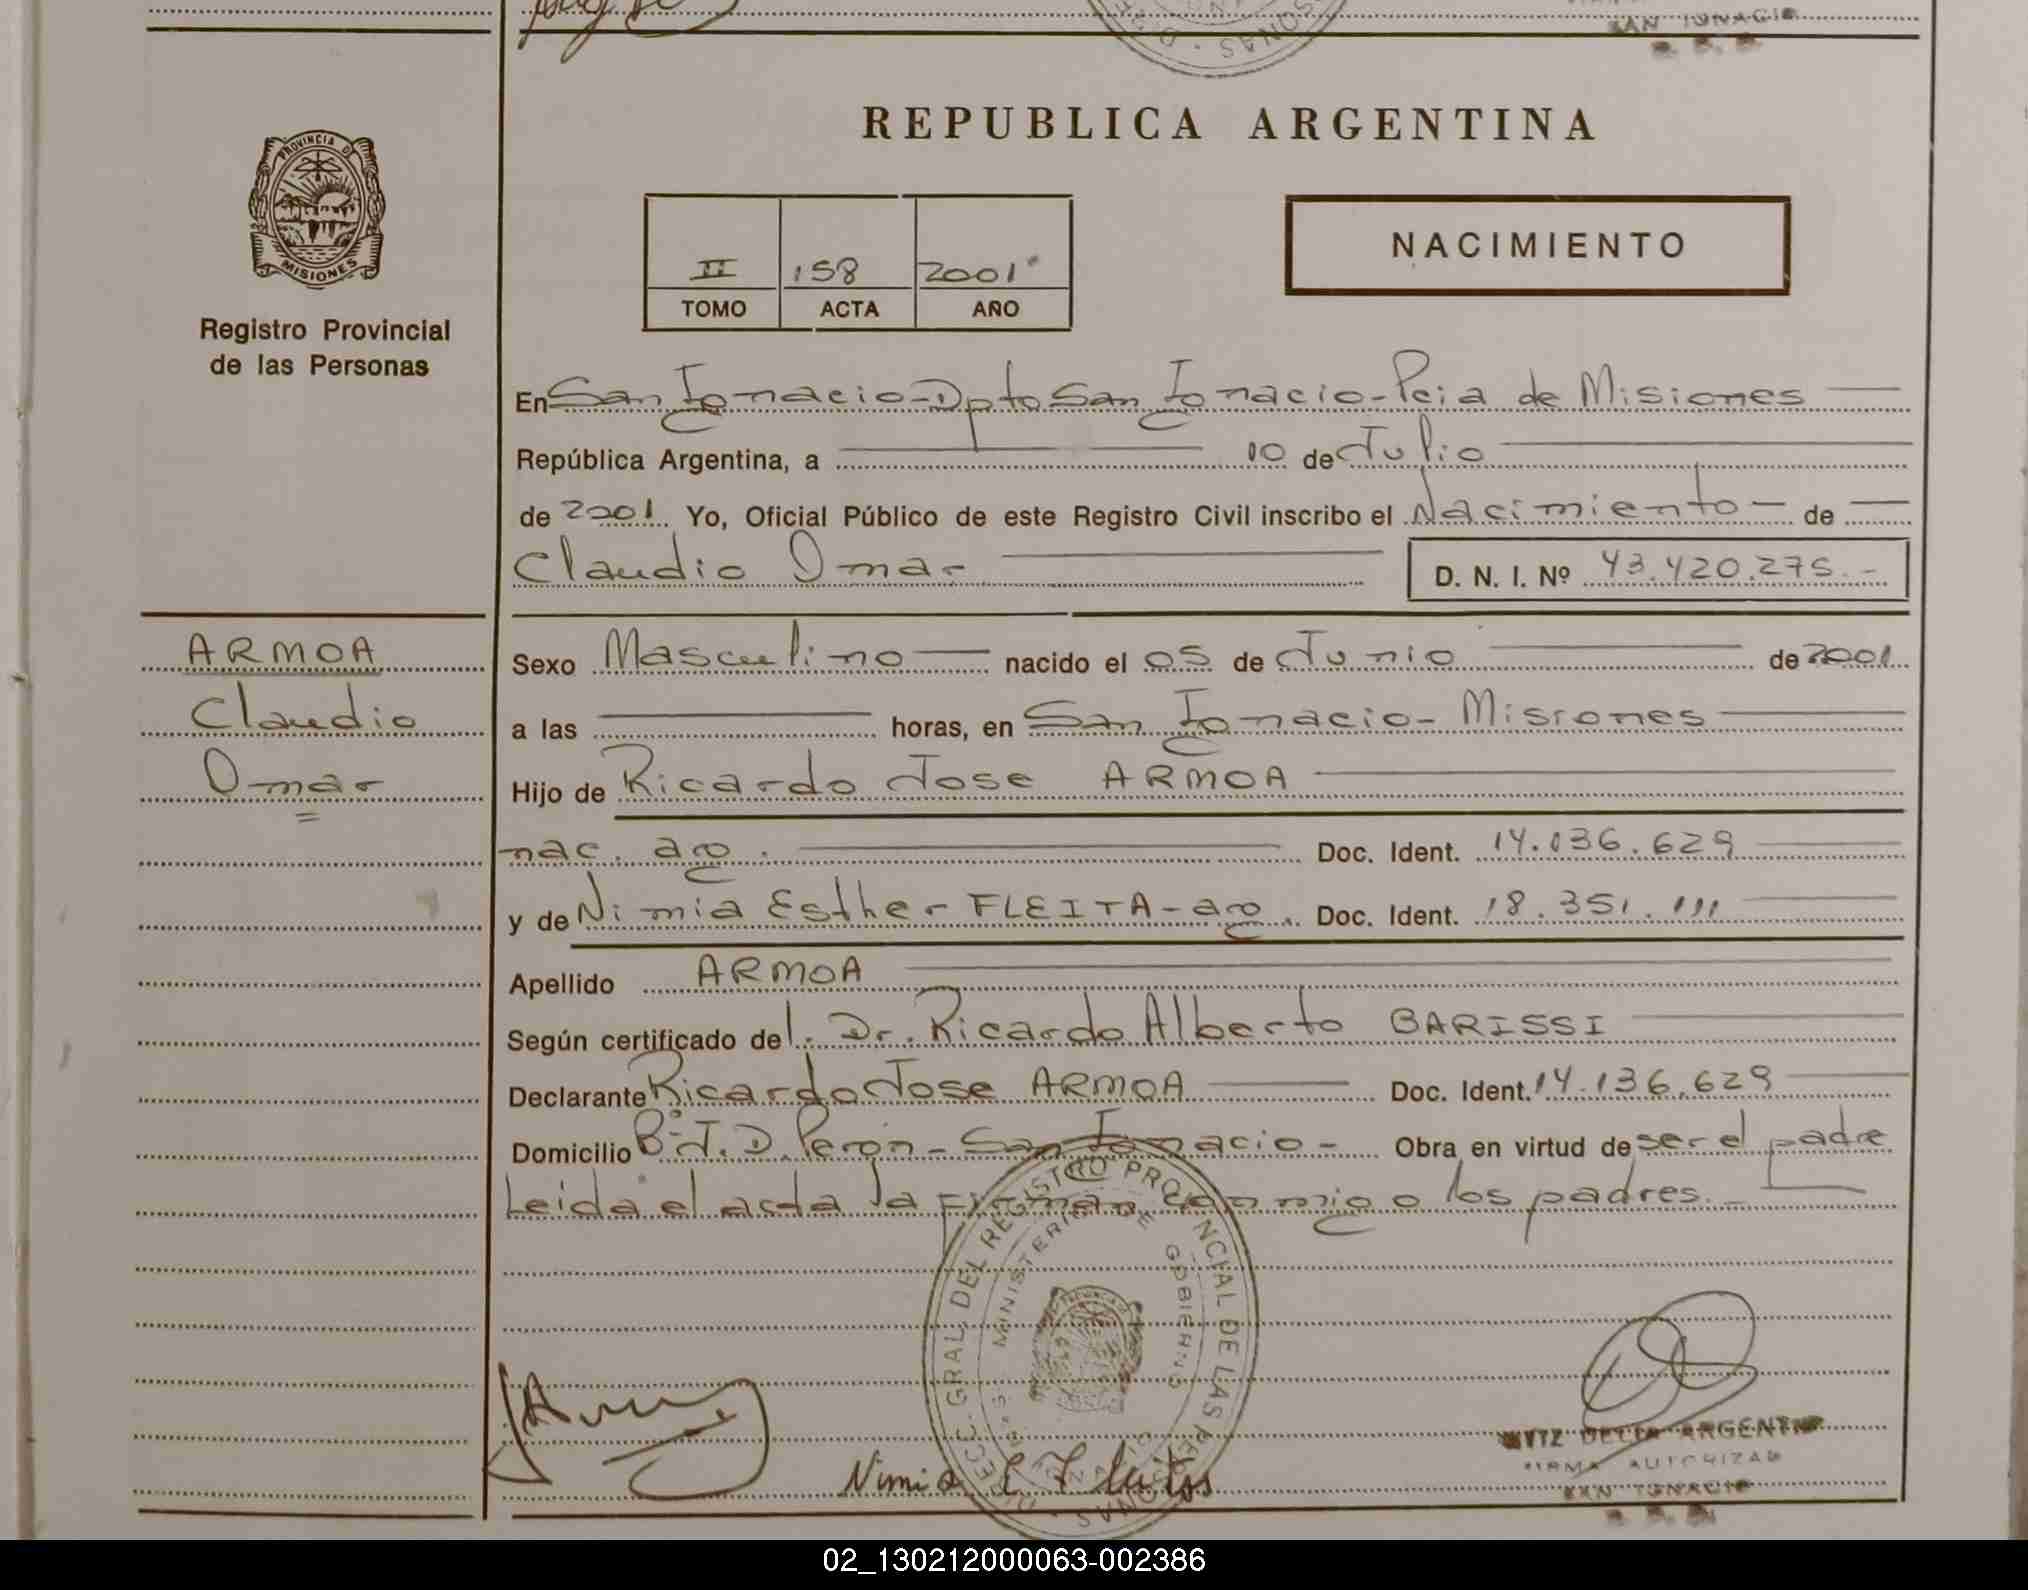 SAN IGNACIO
REPUBLICA ARGENTINA
PROVINCIA DE
MISIONES
Registro Provincial
de las Personas
II 158 2001
TOMO ACTA AÑO
NACIMIENTO
En San Ignacio-Dpto San Ignacio-Pcia de Misiones
República Argentina, a 10 de Julio
de 2001. Yo, Oficial Público de este Registro Civil inscribo el Nacimiento - de
Claudio Omar D. N. I. Nº 43.420.275.-
ARMOA
Claudio
Omar
Sexo Masculino nacido el 05 de Junio de 2001
a las horas, en San Ignacio- Misiones
Hijo de Ricardo Jose ARMOA
nac. arg. Doc. Ident. 14.036.629
y de Nimia Esther FLEITA-arg. Doc. Ident. 18.351.111
Apellido ARMOA
Según certificado del. Dr. Ricardo Alberto BARISSI
Declarante Ricardo Jose ARMOA Doc. Ident. 14.136.629
Domicilio Bº J. D. Peron- San Ignacio- Obra en virtud de ser el padre
Leida el acta la firman conmigo los padres.-
DIRECC. GRAL. DEL REGISTRO PROVINCIAL DE LAS PERSONAS
MINISTERIO DE GOBIERNO
Nimia E Fleitas
DELIA ARGENTINA
FIRMA AUTORIZAD
SAN IGNACIO
02_130212000063-002386